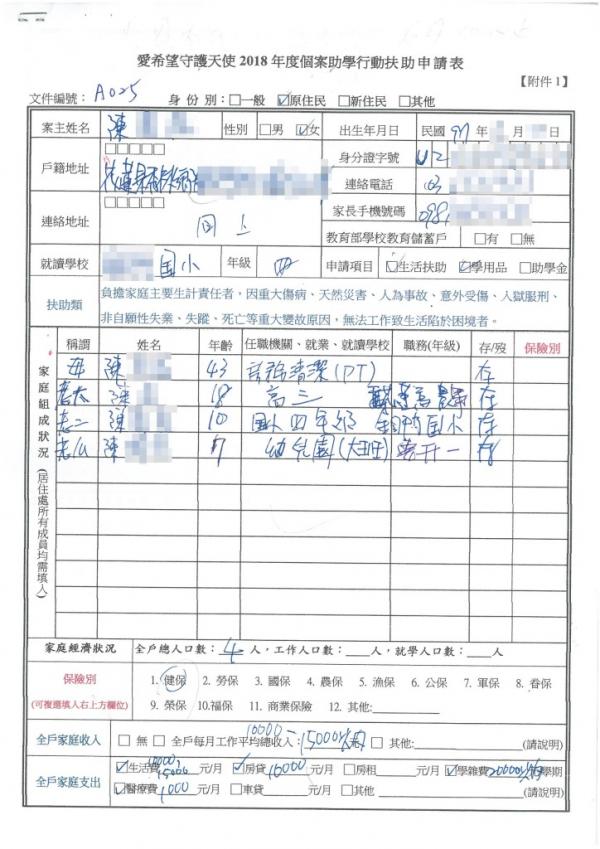 愛希望守護天使 2018 年度個案助學行動扶助申請表
【附件 1】
文件編號：A025 身份別：□一般 ☑原住民 □新住民 □其他
案主姓名 陳 性別 □男 ☑女 出生年月日 民國 97 年
戶籍地址 □□□□□ 花蓮縣 身分證字號 U2
連絡電話 03
連絡地址 □□□□□ 同上 家長手機號碼 098
教育部學校教育儲蓄戶 □有 □無
就讀學校 國小 年級 四 申請項目 ☑生活扶助 ☑學用品 □助學金
扶助類 負擔家庭主要生計責任者，因重大傷病、天然災害、人為事故、意外受傷、入獄服刑、
非自願性失業、失蹤、死亡等重大變故原因，無法工作致生活陷於困境者。
家庭組成狀況(居住處所有成員均需填入)
稱謂 姓名 年齡 任職機關、就業、就讀學校 職務(年級) 存/歿 保險別
母 陳 43 清潔(PT) 存
老大 陳 18 高三 存
老二 陳 10 國小四年級 國小 存
老么 陳 7 幼兒園(大班) 升一 存
家庭經濟狀況 全戶總人口數：4人，工作人口數：____人，就學人口數：____人
保險別 1. 健保 2. 勞保 3. 國保 4. 農保 5. 漁保 6. 公保 7. 軍保 8. 眷保
(可複選填入右上方欄位) 9. 榮保 10.福保 11. 商業保險 12. 其他:
全戶家庭收入 □ 無 □ 全戶每月工作平均總收入：10000－15000 □ 其他: (請說明)
全戶家庭支出 ☑生活費 15000 元/月 ☑房貸 10000 元/月 □房租 元/月 ☑學雜費 20000 學期
☑醫療費 1000 元/月 □車貸 元/月 □其他 (請說明)